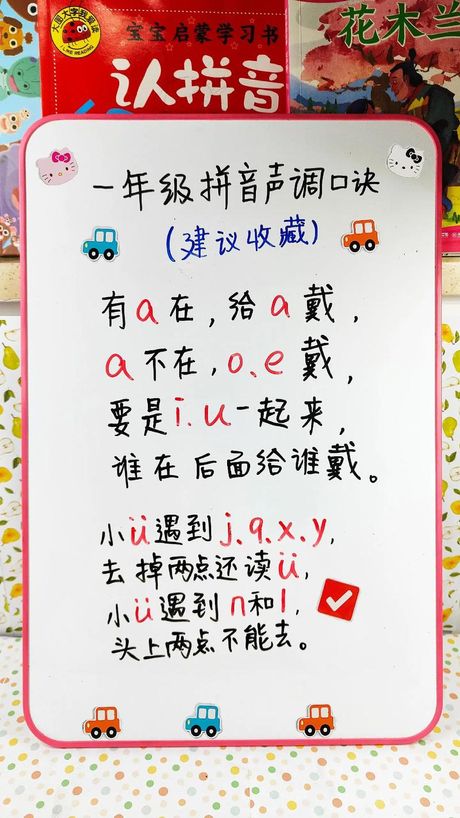 大图大字我爱读
I LIKE READING
宝宝启蒙学习书
认拼音
花木兰
一年级拼音声调口诀
(建议收藏)
有a在,给a戴,
a不在,o、e戴,
要是i、u一起来,
谁在后面给谁戴。
小ü遇到j、q、x、y,
去掉两点还读ü,
小ü遇到n和l,
头上两点不能去。